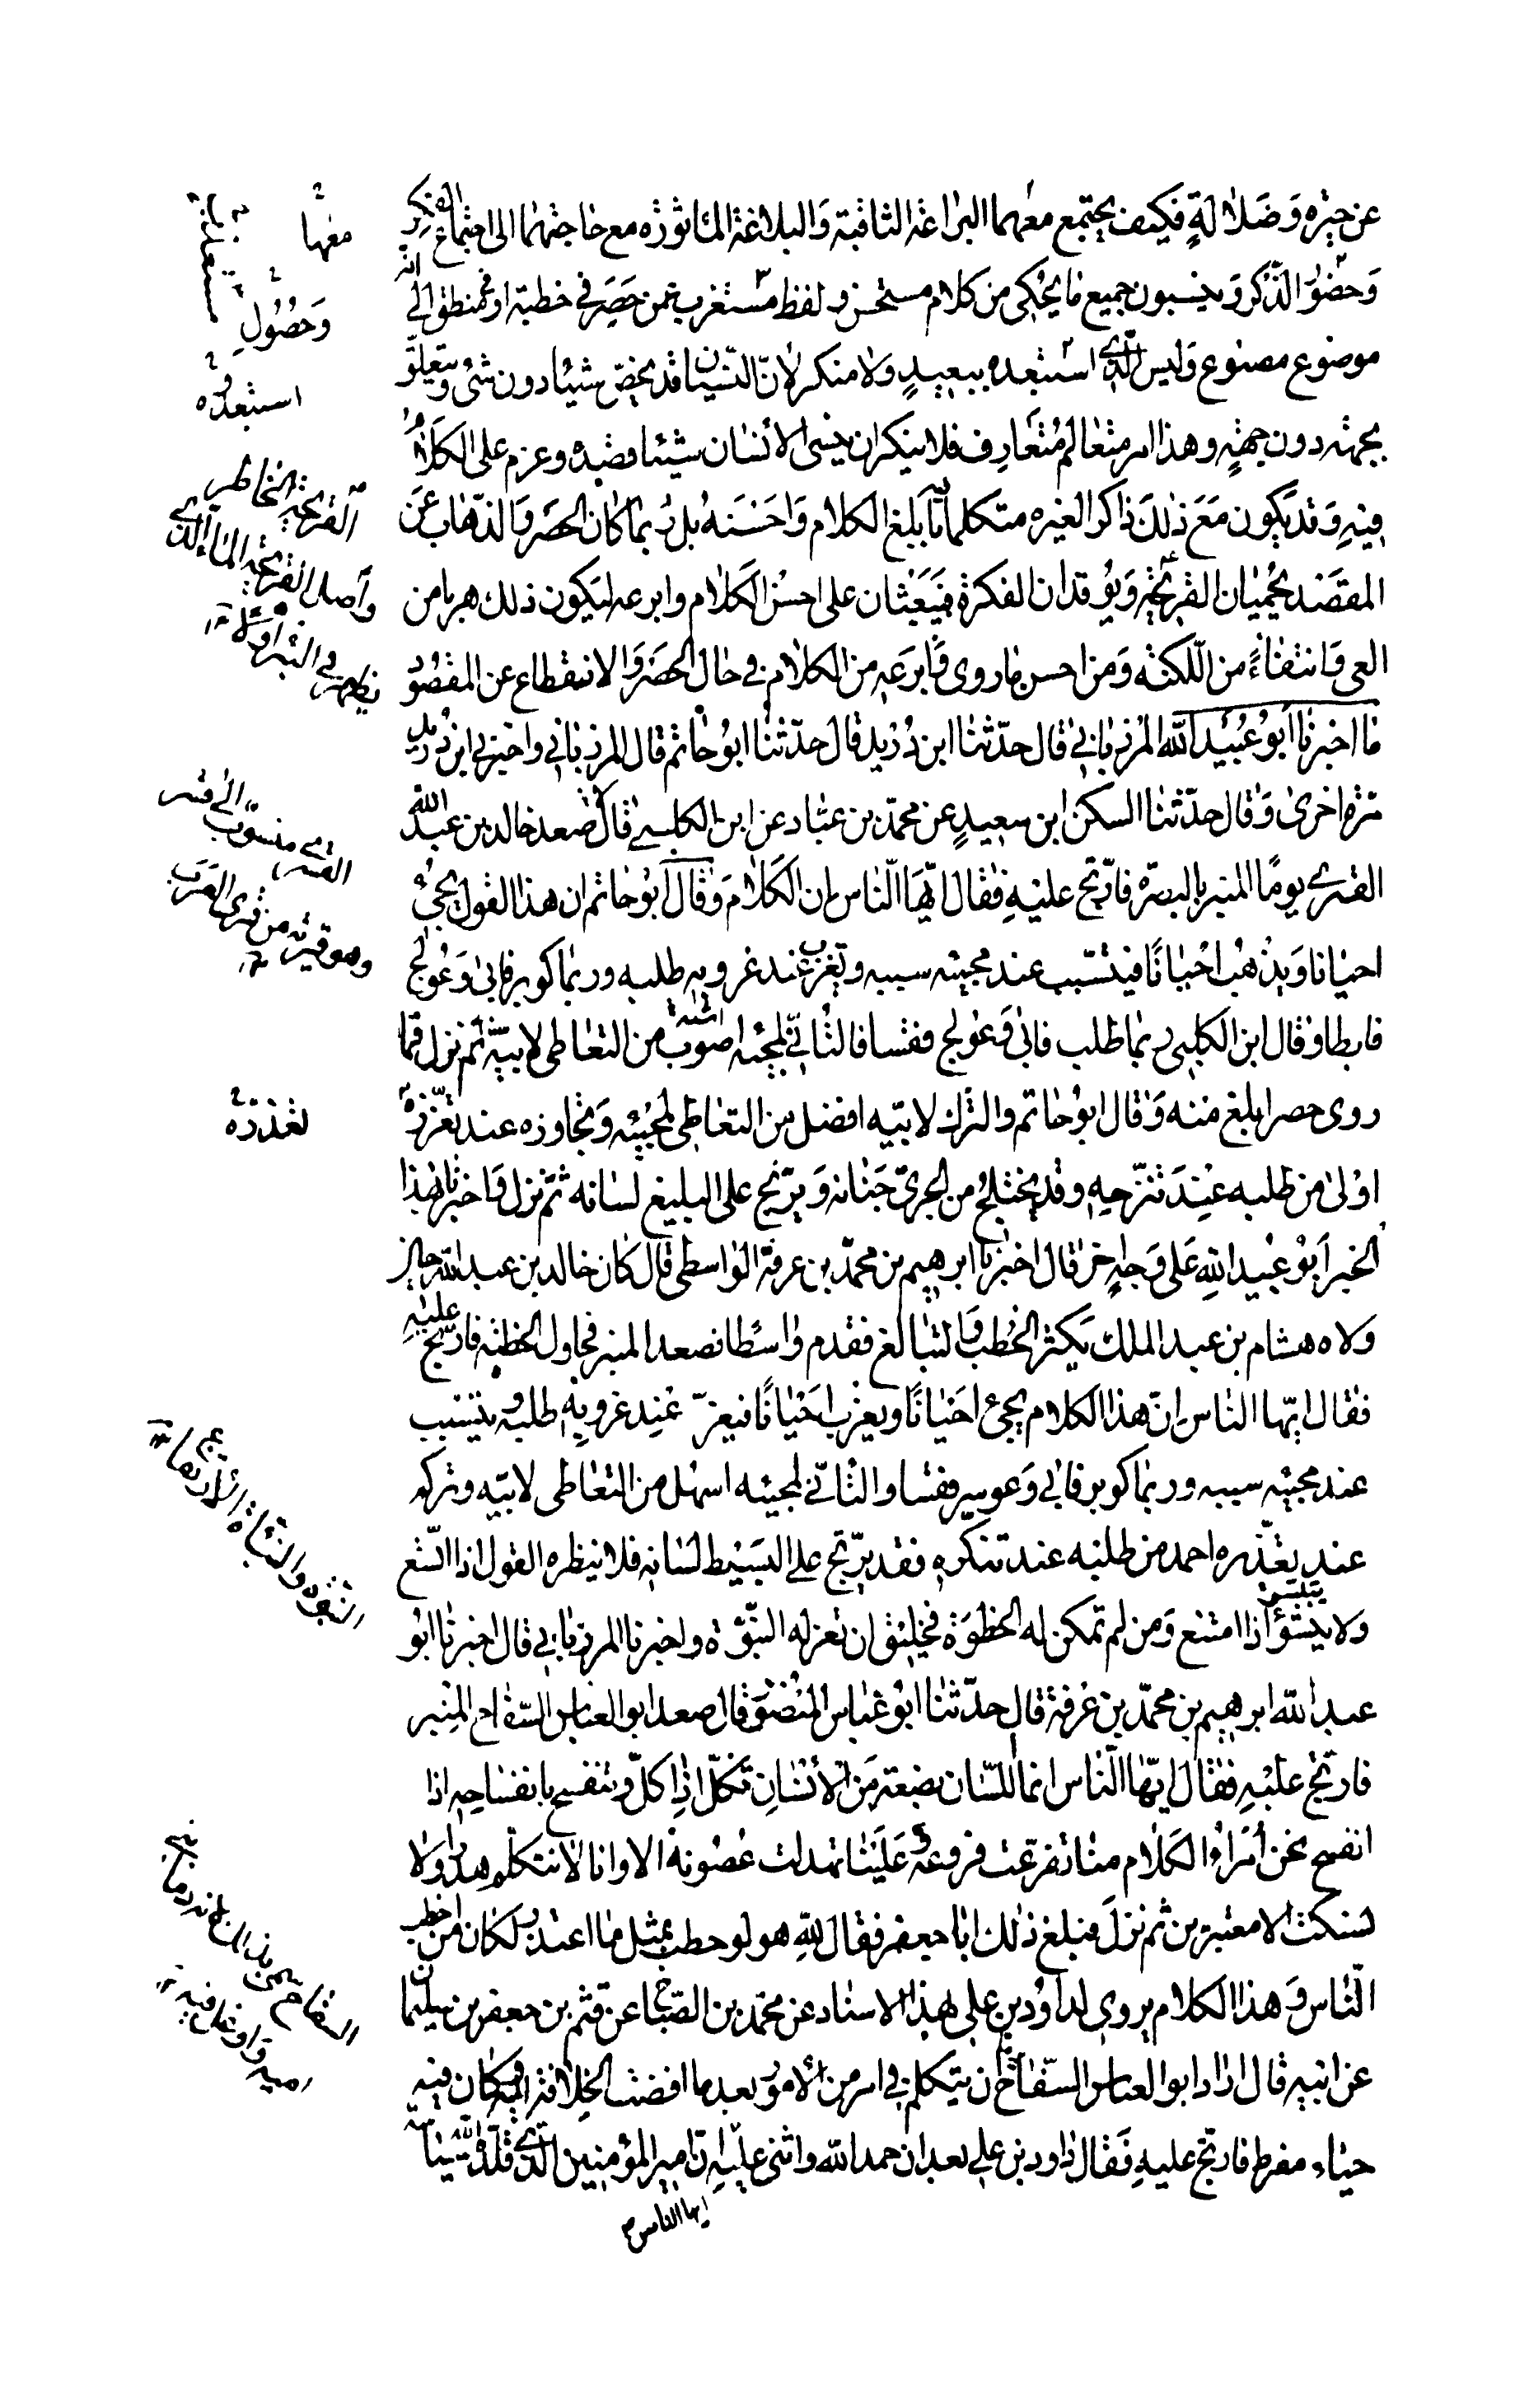 عن حيرة وضلالة فكيف يجتمع معهما البراعة الثاقبة والبلاغة المأثورة مع حاجتهما الى اجتماع الفكر
وحضور الذكر وينسبون جميع ما يحكى من كلام مستحسن ولفظ مستغرب عمن حصر في خطبة او في منطق الى انه
موضوع مصنوع وليس الذي استبعده ببعيد ولا منكر لان النسيان قد يخص شيئا دون شئ ويتعلق
بجهة دون جهة وهذا امر متعالم متعارف فلا ينكر ان ينسى الانسان شيئا قصده وعزم على الكلام
فيه وقد يكون مع ذلك ذاكرا لغيره متكلما فيه بابلغ الكلام واحسنه بل ربما كان الحصر والذهاب عن
المقصد يحميان القريحة ويوقدان الفكرة فيبعثان على احسن الكلام وابرعه ليكون ذلك هربا من
العي وانتفاءً من اللكنة ومن احسن ما روى وابرعه من الكلام في حال الحصر والانقطاع عن المقصود
ما اخبرنا ابو عبيد الله المرزباني قال حدثنا ابن دريد قال حدثنا ابو حاتم قال المرزباني واخبرني ابن دريد
مرة اخرى وقال حدثنا السكن ابن سعيد عن محمد بن عباد عن ابن الكلبي قال صعد خالد بن عبد الله
القسري يومًا المنبر بالبصرة فارتج عليه فقال ايها الناس ان الكلام وقال ابو حاتم ان هذا القول يجئ
احيانا ويذهب احيانًا فيتسبب عند مجيئه سببه ويعزب عند عزوبه طلبه وربما كوبر فابى وعولج
فابطا وقال ابن الكلبي ربما طلب فابى وعولج فقسا فالتأنى لمجيئه اصوب من التعاطى لابيه ثم نزل فما
روى حصر ابلغ منه وقال ابو حاتم والترك لابيه افضل من التعاطى لمجيئه وتجاوزه عند تعززه
اولى من طلبه عند تنزحه وقد يختلج من الجرى جنانه ويرتج على البليغ لسانه ثم نزل واخبرنا بهذا
الخبر ابو عبيد الله على وجه اخر قال اخبرنا ابرهيم بن محمد بن عرفة الواسطي قال كان خالد بن عبد الله حين
ولاه هشام بن عبد الملك يكثر الخطب والتبالغ فقدم واسطا فصعد المنبر فحاول الخطبة فارتج عليه
فقال ايها الناس ان هذا الكلام يجئ احيانًا ويعزب احيانًا فيعز عند عزوبه طلبه ويتسبب
عند مجيئه سببه وربما كوبر فابى وعوسر فقسا والتأنى لمجيئه اسهل من التعاطى لابيه وتركه
عند تعذره احمد من طلبه عند تنكره فقد يرتج على البسيط لسانه فلا ينظره القول اذا اتسع
ولا يتيسر اذا امتنع ومن لم تمكن له الخطوة فخليق ان تعز له النبوة واخبرنا المرزباني قال اخبرنا ابو
عبد الله ابرهيم بن محمد بن عرفة قال حدثنا ابو عباس المنصوري قال صعد ابو العباس السفاح المنبر
فارتج عليه فقال ايها الناس انما اللسان بضعة من الانسان تكل اذا كل وتنفسح بانفساحه اذا
انفسح نحن امراء الكلام منا تفرعت فروعه وعلينا تهدلت غصونه الا وانا لا نتكلم هذرا ولا
نسكت الا معتبرين ثم نزل فبلغ ذلك ابا جعفر فقال لله هو لو خطب بمثل ما اعتذر لكان من اخطب
الناس وهذا الكلام يروى لداود بن علي بهذا الاسناد عن محمد بن الصباح عن قثم بن جعفر بن سليمان
عن ابيه قال اراد ابو العباس السفاح ان يتكلم في امر من الامور بعد ما افضت الخلافة اليه وكان فيه
حياء مفرط فارتج عليه فقال داود بن علي بعد ان حمد الله واثنى عليه ان امير المؤمنين الذي قلده الله سياسة
ايها الناس
معها
وحصول
استبعدوه
القريحة الخاطر
واصل القريحة الماء الذي
يظهر في البئر اوله
القسري منسوب الى قسر
وهو قرية من قرى العرب
تعذره